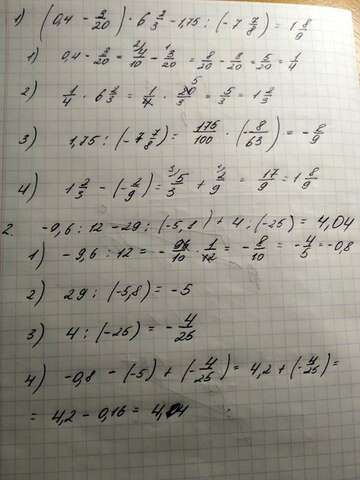 1) (0,4 - 3/20) · 6 2/3 - 1,75 : (-7 7/8) = 1 8/9
1) 0,4 - 3/20 = 4/10 - 3/20 = 8/20 - 3/20 = 5/20 = 1/4
2) 1/4 · 6 2/3 = 1/4 · 20/3 = 5/3 = 1 2/3
3) 1,75 : (-7 7/8) = 175/100 · (-8/63) = -2/9
4) 1 2/3 - (-2/9) = 5/3 + 2/9 = 17/9 = 1 8/9
2. -9,6 : 12 - 29 : (-5,8) + 4 : (-25) = 4,04
1) -9,6 : 12 = -96/10 · 1/12 = -8/10 = -4/5 = -0,8
2) 29 : (-5,8) = -5
3) 4 : (-25) = -4/25
4) -0,8 - (-5) + (-4/25) = 4,2 + (-4/25) =
= 4,2 - 0,16 = 4,04